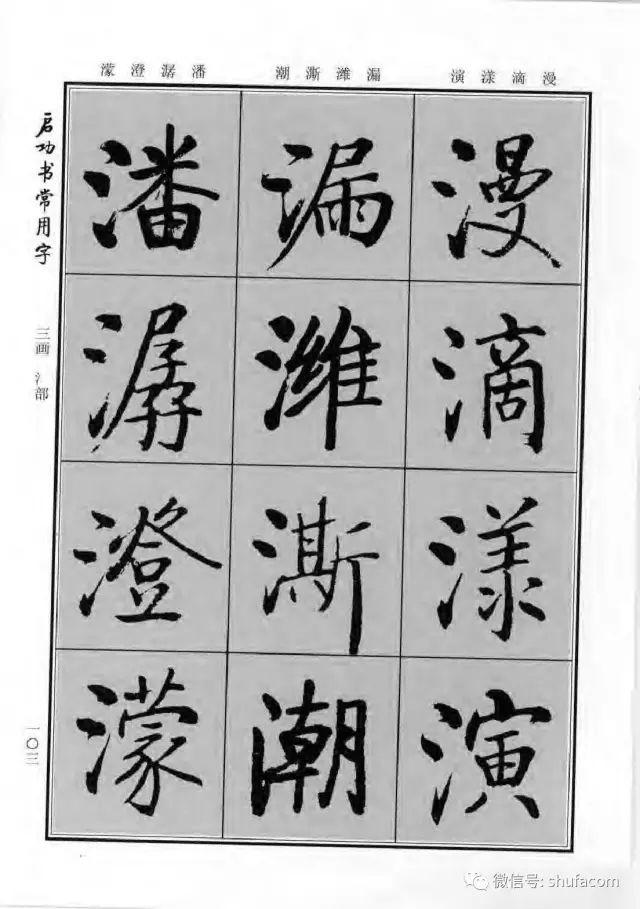 濛澄潺潘
潮澌潍漏
演漾滴漫
启功书常用字
三画 氵部
漫
滴
漾
演
漏
潍
澌
潮
潘
潺
澄
濛
一〇三
微信号: shufacom